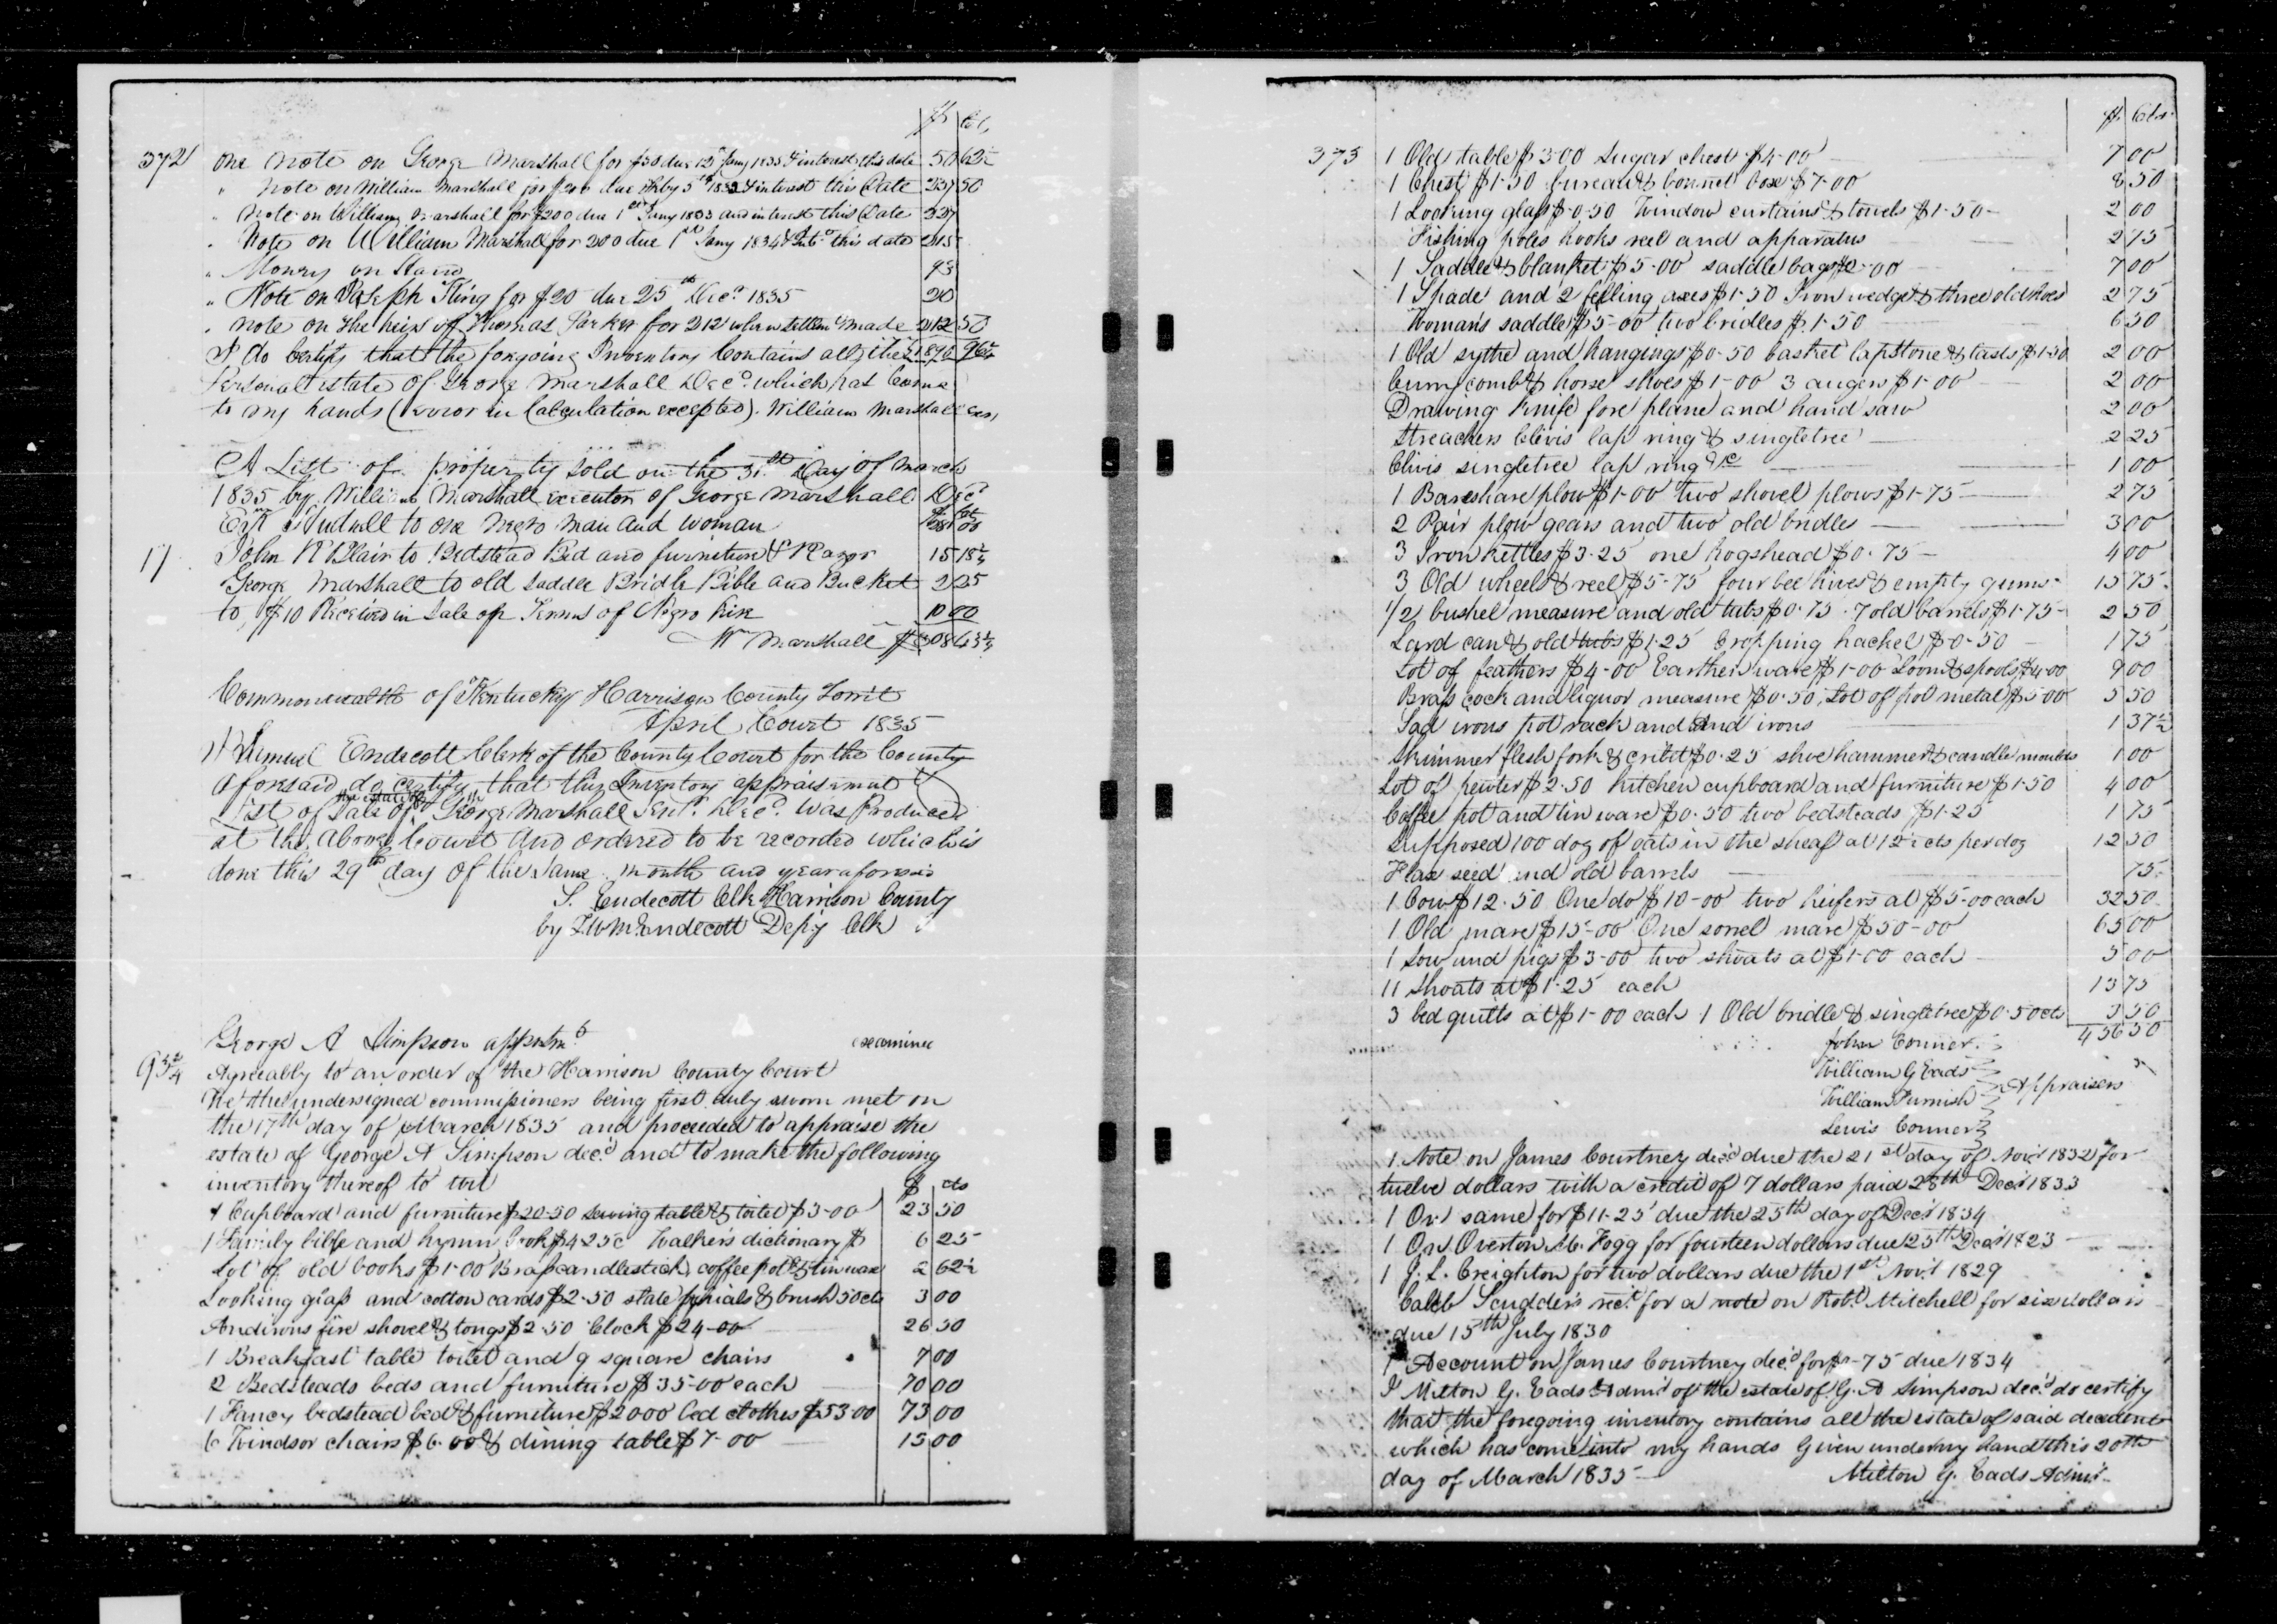 $ Cts
372 One Note on George Marshall for $50 due 15th Jany 1835 & interest this date 50 62½
" Note on William Marshall for $200 due 5th 1832 & interest this Date 237 50
" Note on William Marshall for $200 due 1st Jany 1833 and interest this Date 227
" Note on William Marshall for 200 due 1st Jany 1834 & Int. this date 215
" Money on Hand 93
" Note on Joseph King for $20 due 25th Decr 1835 20
" note on the heirs of Thomas Parker for 212 when settlemt made 212 50
I do Certify that the forgoing Inventory Contains all the
Personal estate of George Marshall Decd. which has Come
to my hands (error in Calculation excepted). William Marshall Exr,
A List of property sold on the 31st Day of March
1835 by William Marshall executor of George Marshall Decd
to one Negro man and woman
17 John R Blair to Bedstead Bed and furniture & Razor 15 18¾
George Marshall to old Saddle Bridle Bible and Bucket 2 25
to $10 Received in Sale of Negro 10 00
Wm Marshall
Commonwealth of Kentucky Harrison County Sct
April Court 1835
I Samuel Endecott Clerk of the County Court for the County
aforesaid do certify that this Inventory appraisement &
List of Sale of the estate of George Marshall Senr. Decd. was Produced
at the above Court and ordered to be recorded which is
done this 29th day of the same month and year aforesaid
S. Endecott Clk Harrison County
by Endecott Depy Clk
George A Simpson appmt examined
93¾ Agreeably to an order of the Harrison County Court
We the undersigned commissioners being first duly sworn met on
the 17th day of March 1835 and proceeded to appraise the
estate of George A Simpson decd and to make the following
inventory thereof to wit $ cts
1 Cupboard and furniture $20-50 sewing table & toilet $3-00 23 50
1 Family bible and hymn book $4-25c Walker's dictionary $ 6 25
Lot of old books $1-00 Brass candlestick, coffee pot & tin ware 2 62½
Looking glass and cotton cards $2-50 slate phials & brush 50cts 3 00
Andirons fire shovel & tongs $2-50 Clock $24-00 26 50
1 Breakfast table toilet and 9 square chairs 7 00
2 Bedsteads beds and furniture $35-00 each 70 00
1 Fancy bedstead bed & furniture $20-00 bed clothes $53-00 73 00
6 Windsor chairs $6-00 & dining table $7-00 13 00
$ Cts
373 1 Old table $3-00 Sugar chest $4-00 7 00
1 Chest $1-50 bureau & bonnet box $7-00 8 50
1 Looking glass $0-50 Window curtains & towels $1-50 2 00
Fishing poles hooks reel and apparatus 2 75
1 Saddle & blanket $5-00 saddle bags $2-00 7 00
1 Spade and 2 felling axes $1-50 Iron wedges & three old hoes 2 75
Womans saddle $5-00 two bridles $1-50 6 50
1 Old sythe and hangings $0-50 basket lapstone & lasts $1-50 2 00
Curry comb & horse shoes $1-00 3 augers $1-00 2 00
Drawing knife fore plane and hand saw 2 00
Streachers Clivis lap ring & singletree 2 25
Clivis singletree lap ring &c 1 00
1 Bareshare plow $1-00 two shovel plows $1-75 2 75
2 Pair plow gears and two old bridles 3 00
3 Iron kettles $3-25 one hogshead $0-75 4 00
3 Old wheels & reel $5-75 four bee hives & empty gums 15 75
1/2 bushel measure and old tubs $0-75 7 old barrels $1-75 2 50
Lard can & old tubs $1-25 Cropping hackel $0-50 1 75
Lot of feathers $4-00 Earthen ware $1-00 Loom & spools $4-00 9 00
Brass cock and liquor measure $0-50, Lot of pot metal $5-00 5 50
Sad irons pot rack and And irons 1 37½
Skimmer flesh fork & $0-25 shoe hammer & candle moulds 1 00
Lot of pewter $2-50 Kitchen cupboard and furniture $1-50 4 00
Coffee pot and tin ware $0-50 two bedsteads $1-25 1 75
Supposed 100 doz of oats in the sheaf at 12½ cts per doz 12 50
Flax seed and old barrels 75
1 Cow $12-50 One do $10-00 two heifers at $5-00 each 32 50
1 Old mare $15-00 One sorrel mare $50-00 65 00
1 Sow and pigs $3-00 two shoats at $1-00 each 5 00
11 Shoats at $1-25 each 13 75
3 bed quilts at $1-00 each 1 Old bridle & singletree $0-50cts 3 50
456 50
John Conner
William G Eads
William Furnish Appraisers
Lewis Conner
1 Note on James Courtney decd due the 21st day of Novr 1832 for
twelve dollars with a credit of 7 dollars paid 28th Decr 1833
1 On same for $11-25 due the 25th day of Decr 1834
1 On Overton M. Fogg for fourteen dollars due 25th Decr 1823
1 J. L. Creighton for two dollars due the 1st Novr 1829
Caleb Scudders rect. for a note on Robt. Mitchell for six dollars
due 15th July 1830
1 Account on James Courtney decd for $ -75 due 1834
I Milton G. Eads Admr of the estate of G. A Simpson decd do certify
that the foregoing inventory contains all the estate of said decedents
which has come into my hands Given under my hand this 20th
day of March 1835 Milton G. Eads Admr